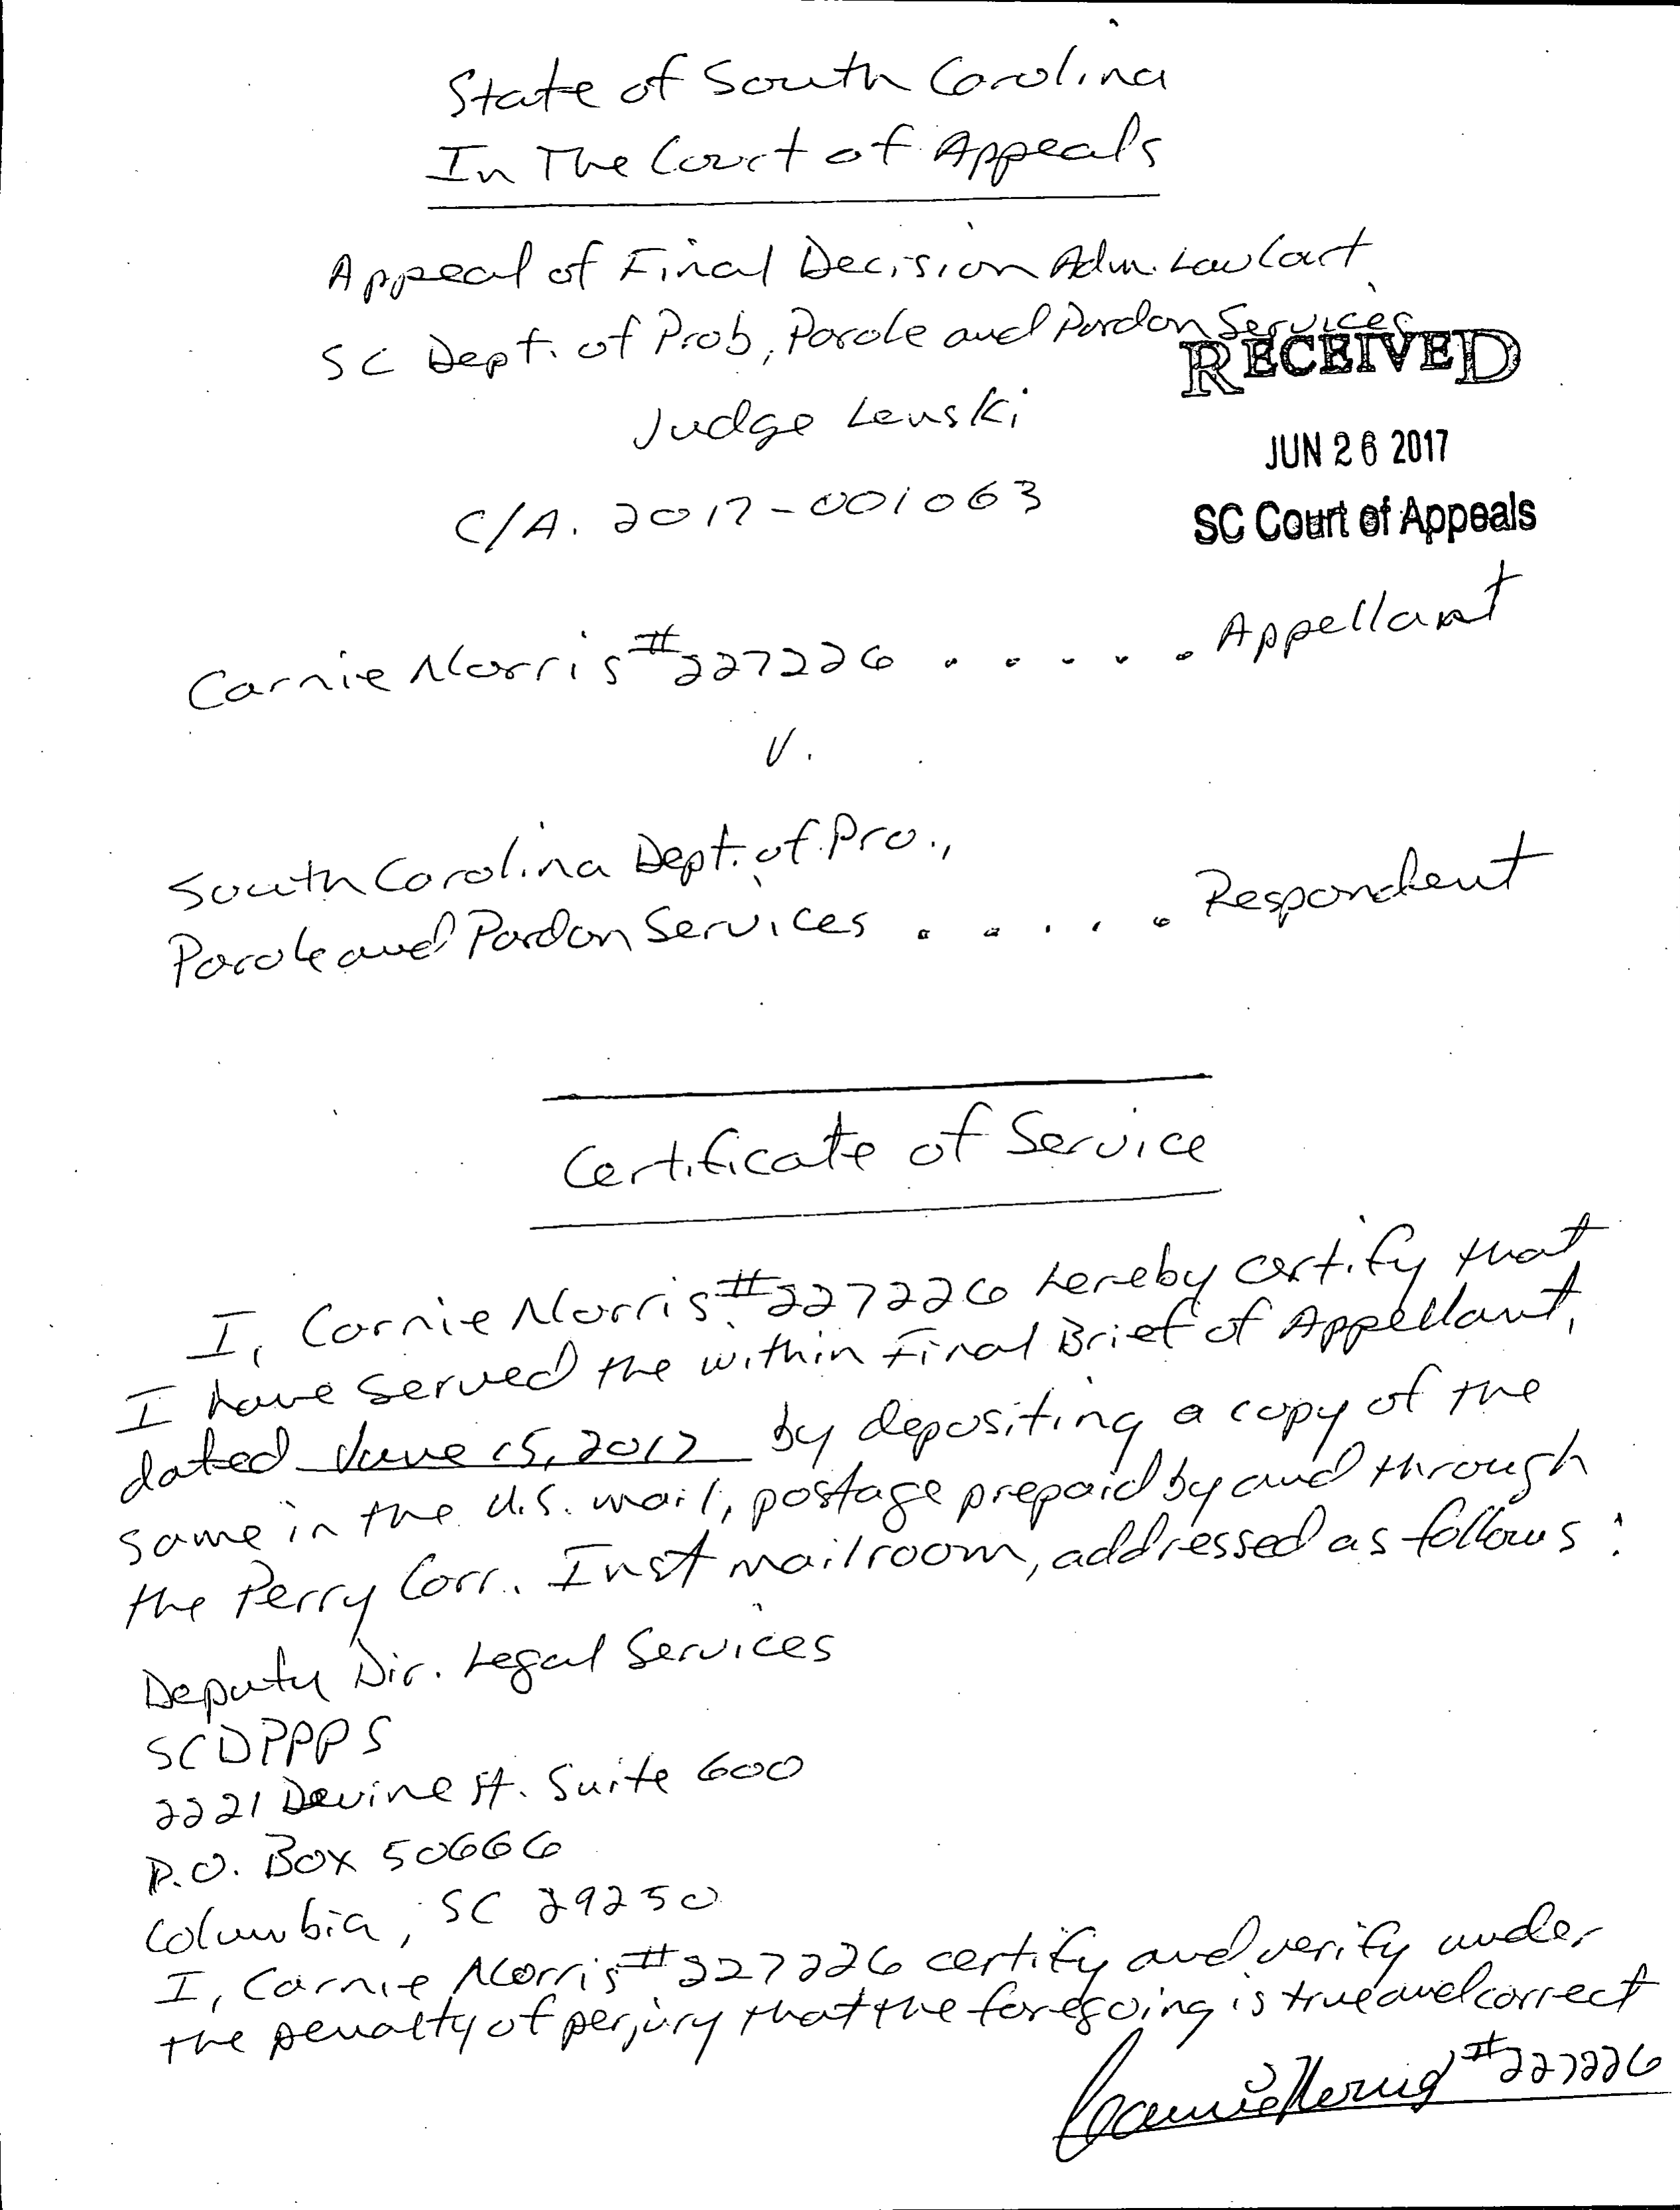 State of South Carolina
In The Court of Appeals
Appeal of Final Decision Adm. Law Court
SC Dept. of Prob, Parole and Pardon Services
RECEIVED
Judge Lenski
JUN 26 2017
C/A. 2017-001063
SC Court of Appeals
Carnie Norris #227226 . . . . . Appellant
v.
South Carolina Dept. of Pro.,
Parole and Pardon Services . . . . . Respondent
Certificate of Service
I, Carnie Norris #227226 hereby certify that
I have served the within Final Brief of Appellant,
dated June 15, 2017 by depositing a copy of the
same in the U.S. mail, postage prepaid by and through
the Perry Corr. Inst mailroom, addressed as follows:
Deputy Dir. Legal Services
SCDPPPS
2221 Devine St. Suite 600
P.O. Box 50666
Columbia, SC 29250
I, Carnie Norris #227226 certify and verify under
the penalty of perjury that the foregoing is true and correct
Carnie Norris #227226